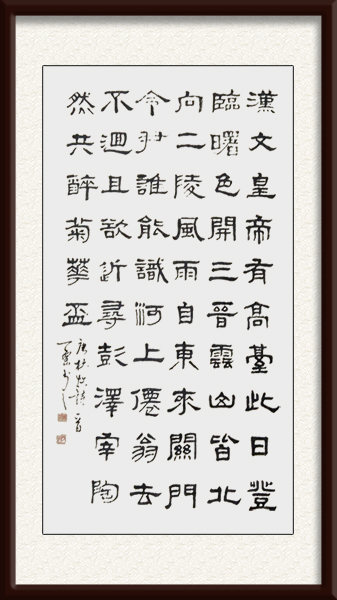 漢文皇帝有高臺此日登
臨曙色開三晉雲山皆北
向二陵風雨自東來關門
令尹誰能識河上僊翁去
不迴且欲近尋彭澤宰陶
然共醉菊華盃
唐崔曙詩一首